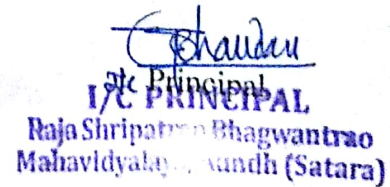 I/C Principal
I/C PRINCIPAL
Raja Shripatrao Bhagwantrao
Mahavidyalaya, Aundh (Satara)